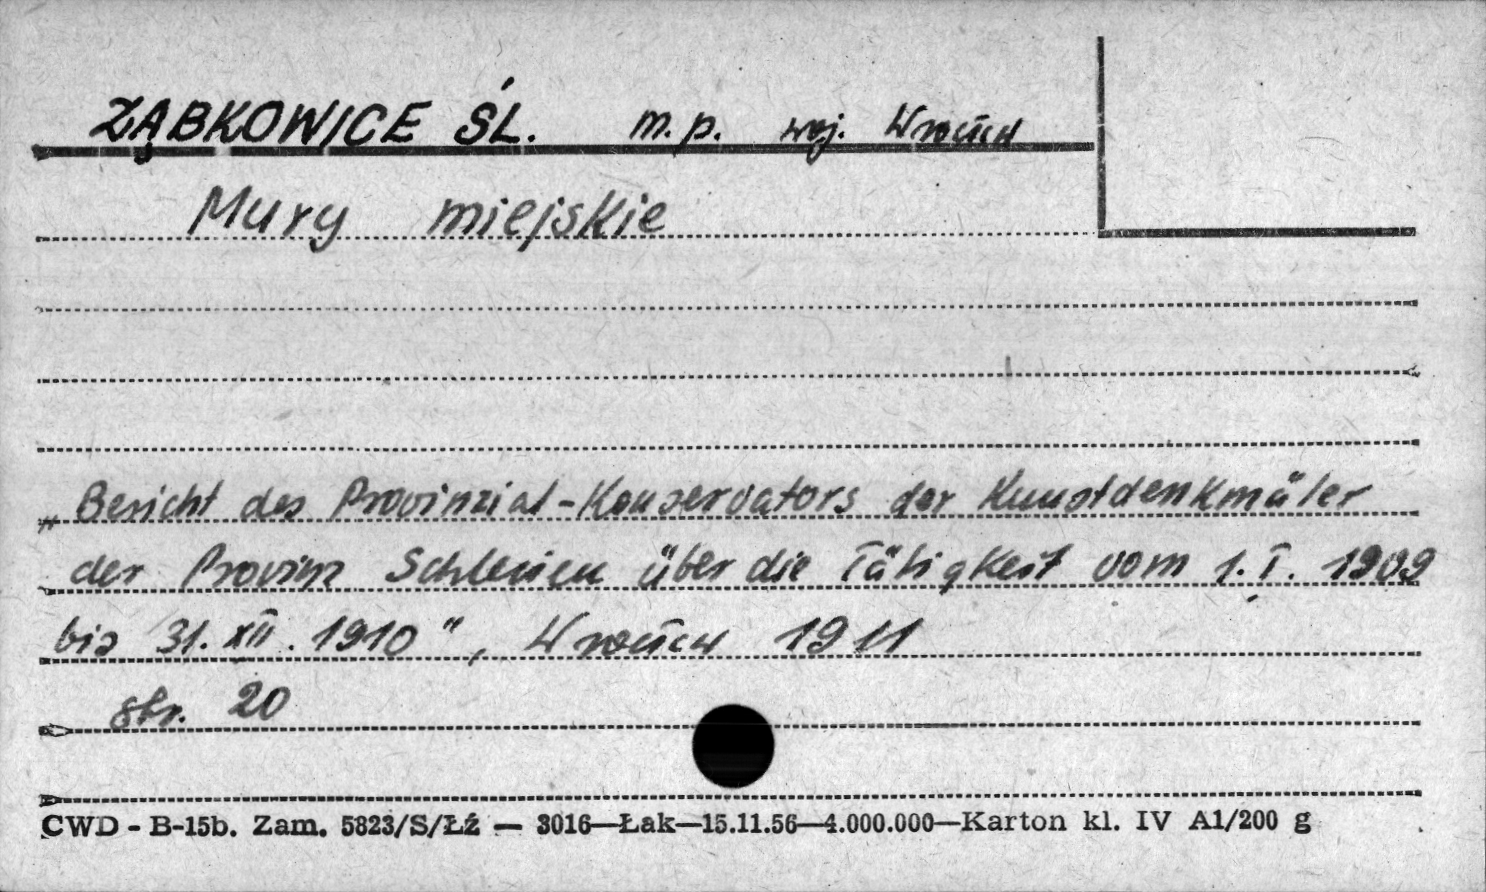 ZĄBKOWICE ŚL. m.p. woj. Wrocław
Mury miejskie
„Bericht des Provinzial-Konservators der Kunstdenkmäler
der Provinz Schlesien über die Tätigkeit vom 1. I. 1909
bis 31. XII. 1910", Wrocław 1911
str. 20
CWD - B-15b. Zam. 5823/S/Łź — 3016—Łak—15.11.56—4.000.000—Karton kl. IV A1/200 g